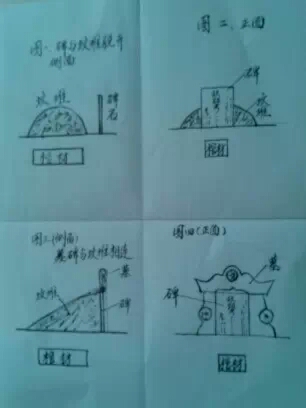 图一、碑与坟堆脱开
侧面
坟堆
碑
石
棺材
图二、正面
碑
坟
堆
棺材
图三(侧面)
墓碑与坟堆相连
坟堆
墓
碑
棺材
图四(正面)
墓
碑
棺材